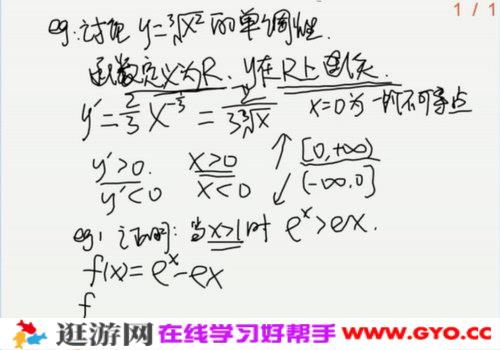 1 / 1
eg:讨论 y=∛x² 的单调性.
函数定义为R. y在R上连续.
y'=2/3 x^(-1/3) = 2/(3∛x) x=0为一个不可导点
y'>0. x>0 ↑ [0,+∞)
y'<0 x<0 ↓ (-∞,0]
eg: 证明: 当x>1时 eˣ>ex.
f(x)=eˣ-ex
f
逛游网 在线学习好帮手 www.GYO.cc